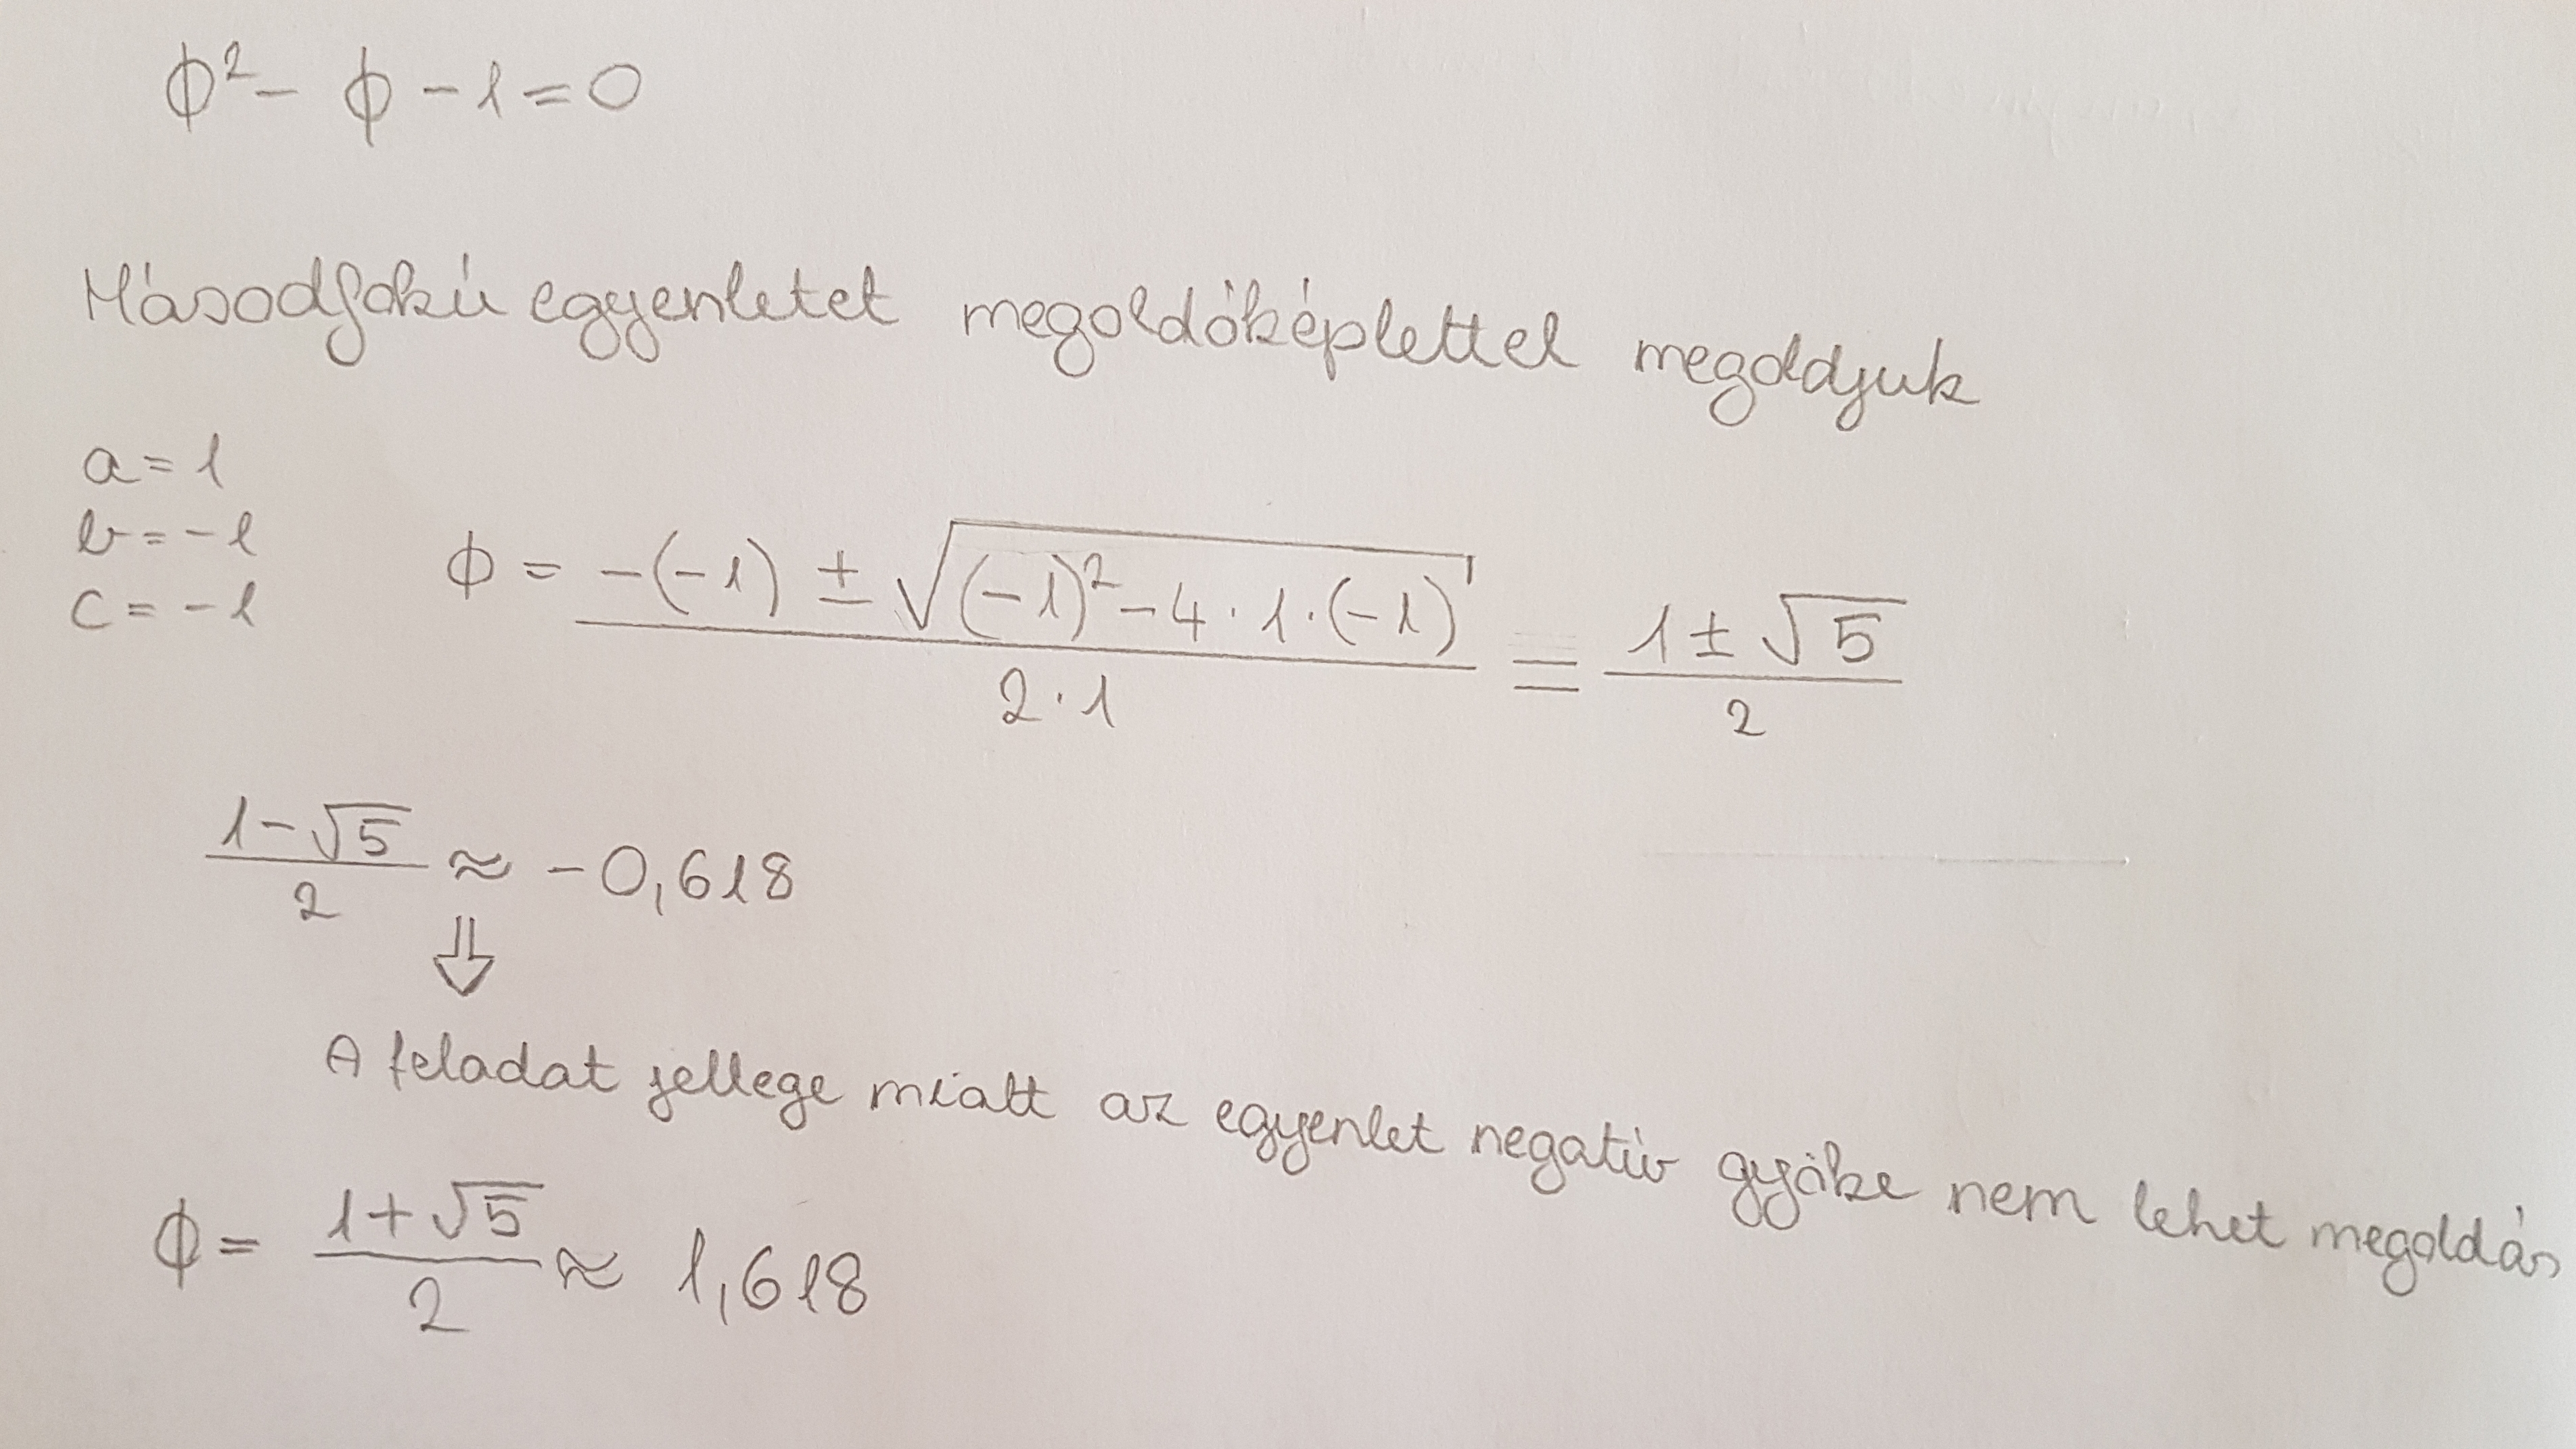 ϕ² - ϕ - 1 = 0
Másodfokú egyenletet megoldóképlettel megoldjuk
a = 1
b = -1
c = -1
ϕ = (-(-1) ± √((-1)² - 4 · 1 · (-1))) / (2 · 1) = (1 ± √5) / 2
(1 - √5) / 2 ≈ -0,618
⇓
A feladat jellege miatt az egyenlet negatív gyöke nem lehet megoldás
ϕ = (1 + √5) / 2 ≈ 1,618